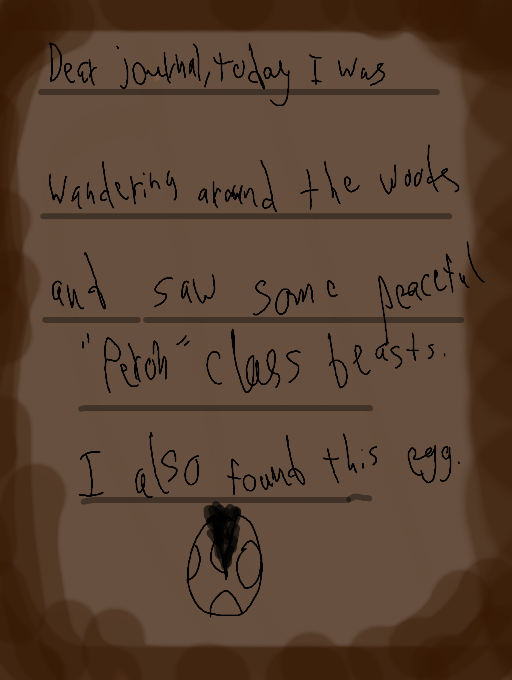 Dear journal, today I was
wandering around the woods
and saw some peaceful
"Peroh" class beasts.
I also found this egg.